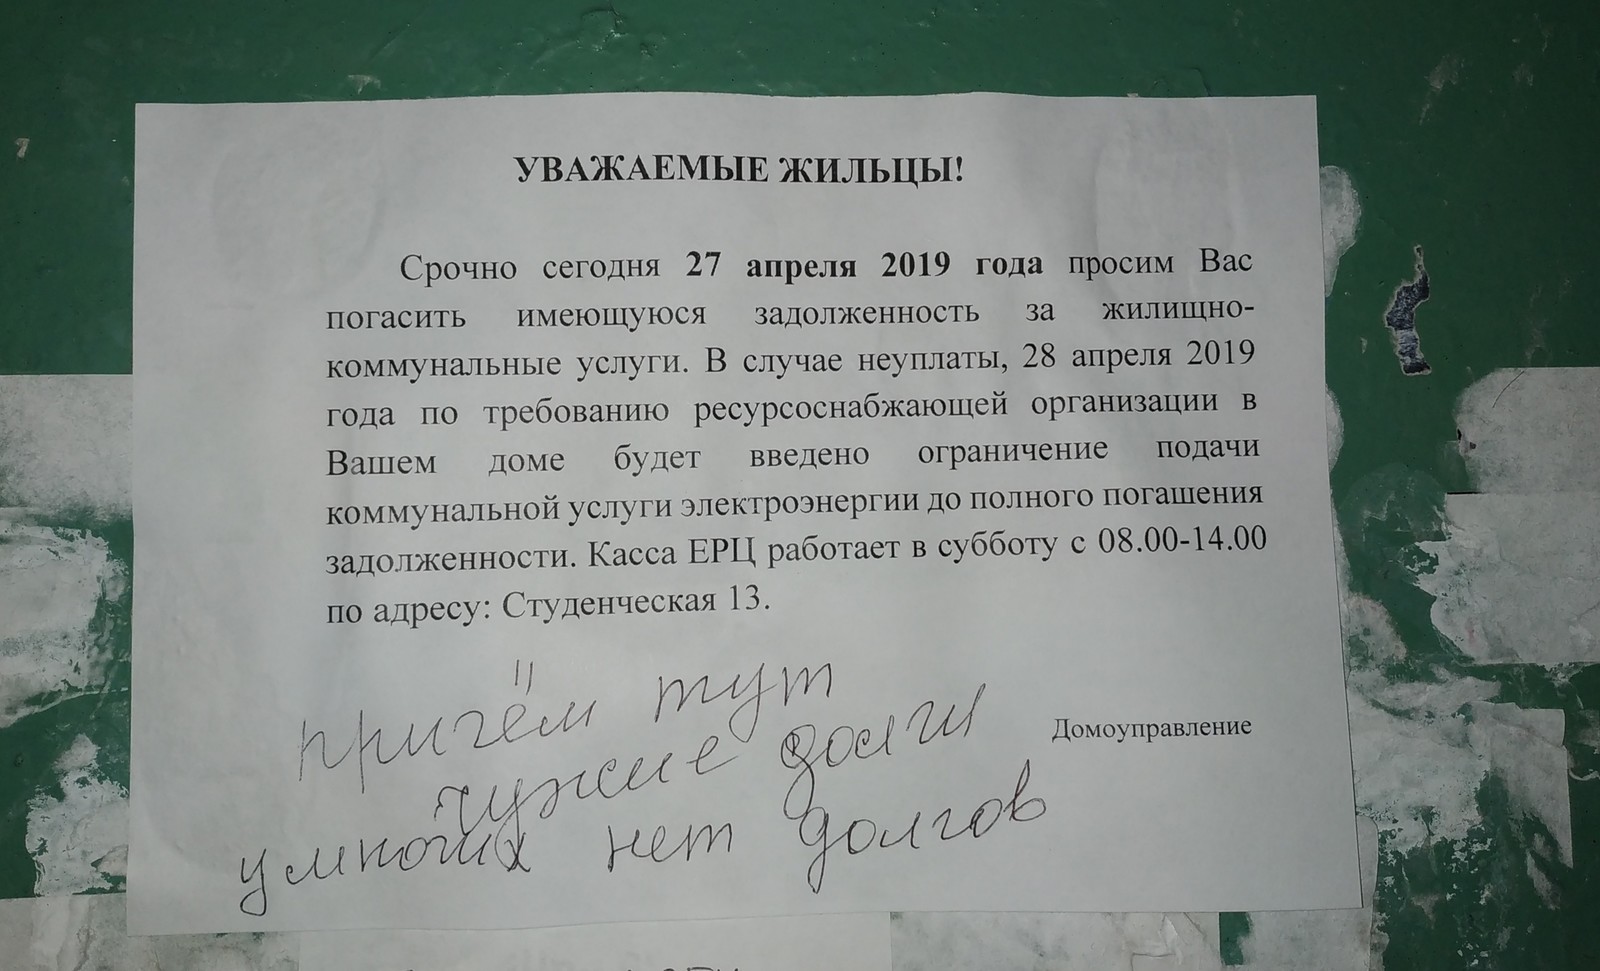 УВАЖАЕМЫЕ ЖИЛЬЦЫ!
Срочно сегодня 27 апреля 2019 года просим Вас
погасить имеющуюся задолженность за жилищно-
коммунальные услуги. В случае неуплаты, 28 апреля 2019
года по требованию ресурсоснабжающей организации в
Вашем доме будет введено ограничение подачи
коммунальной услуги электроэнергии до полного погашения
задолженности. Касса ЕРЦ работает в субботу с 08.00-14.00
по адресу: Студенческая 13.
Домоуправление
причём тут
чужие долги
у многих нет долгов